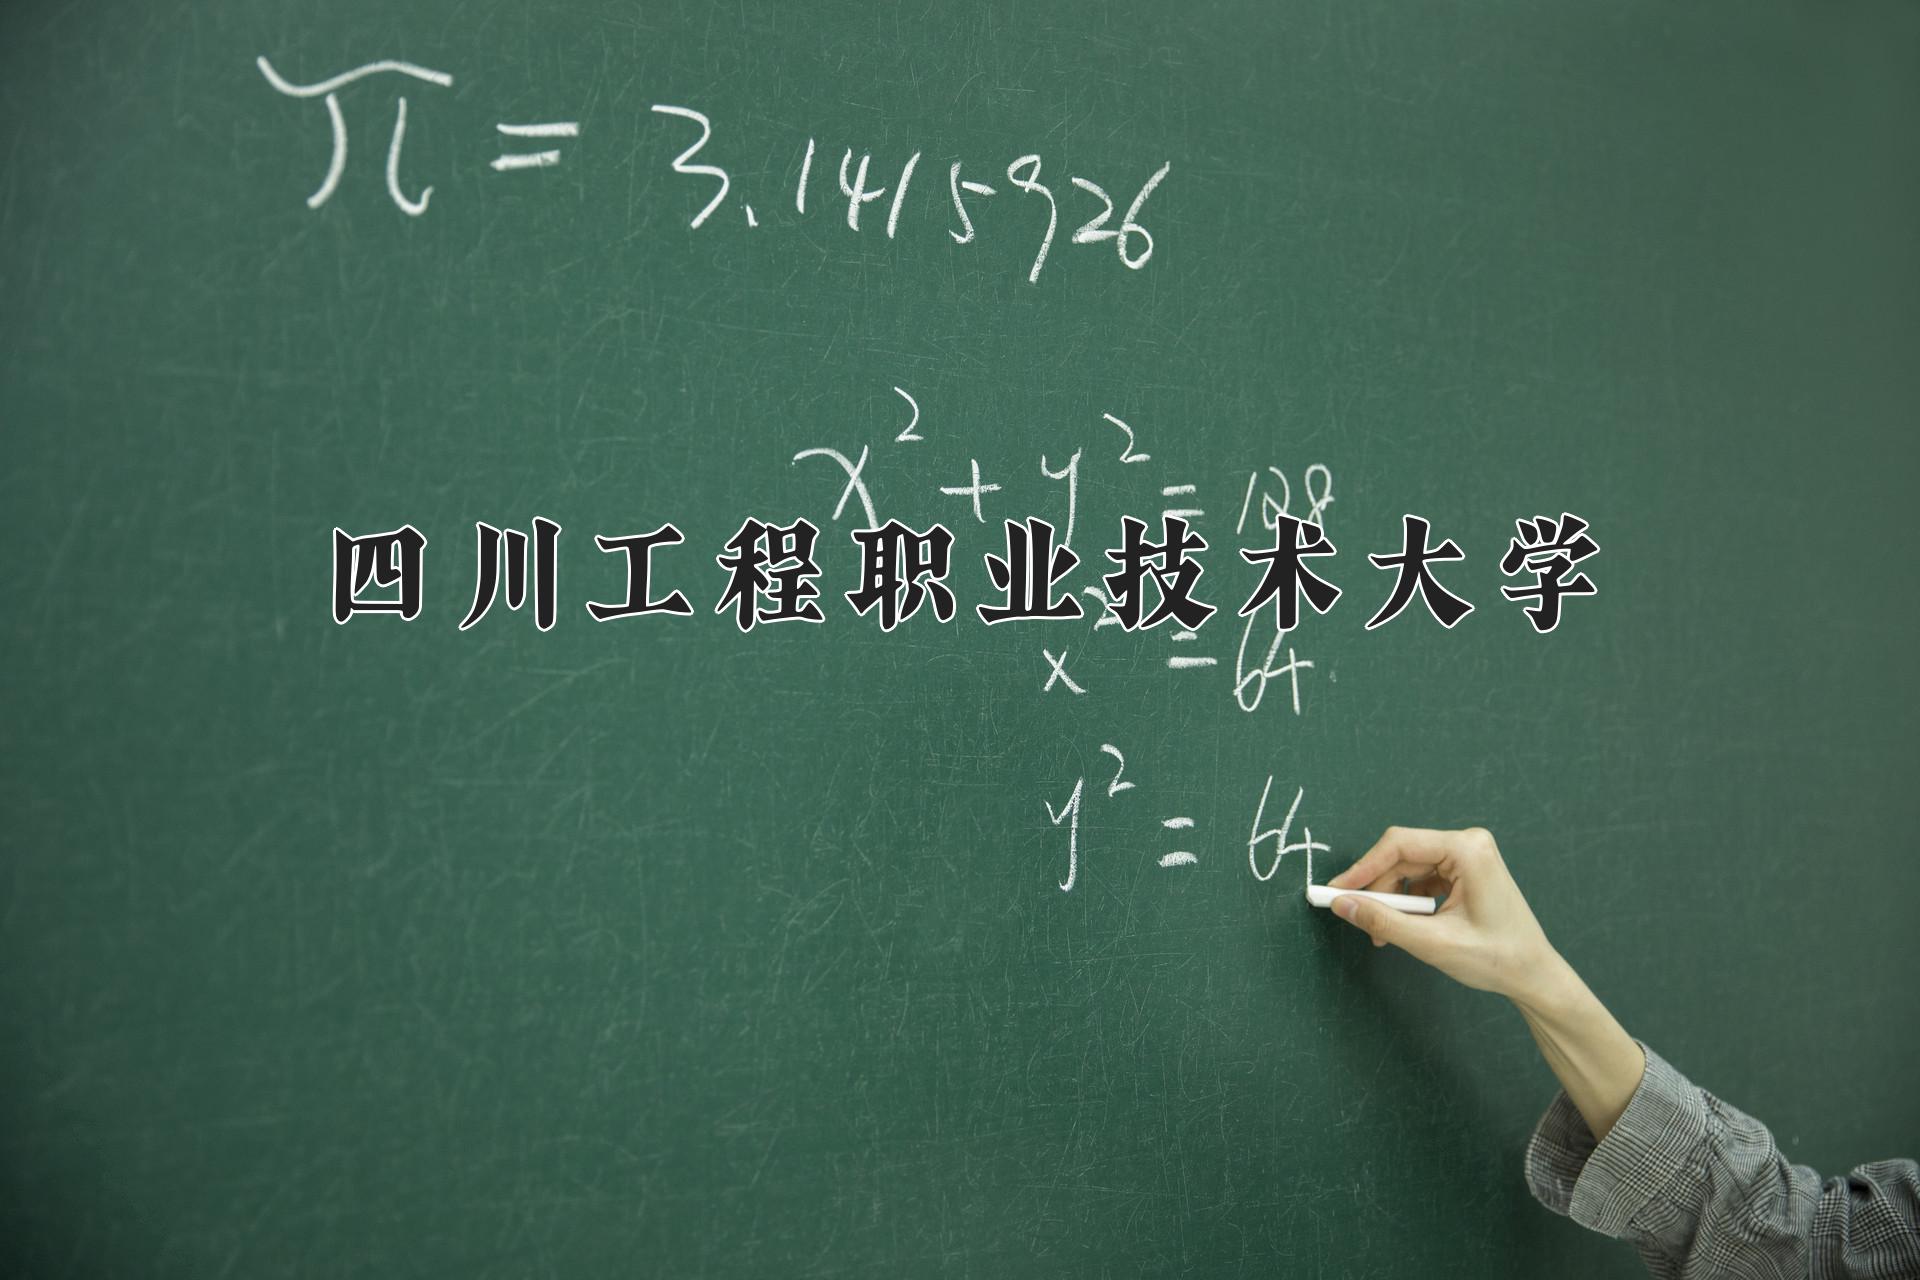 π = 3.1415926
x² + y² = 128
四川工程职业技术大学
x² = 64
y² = 64